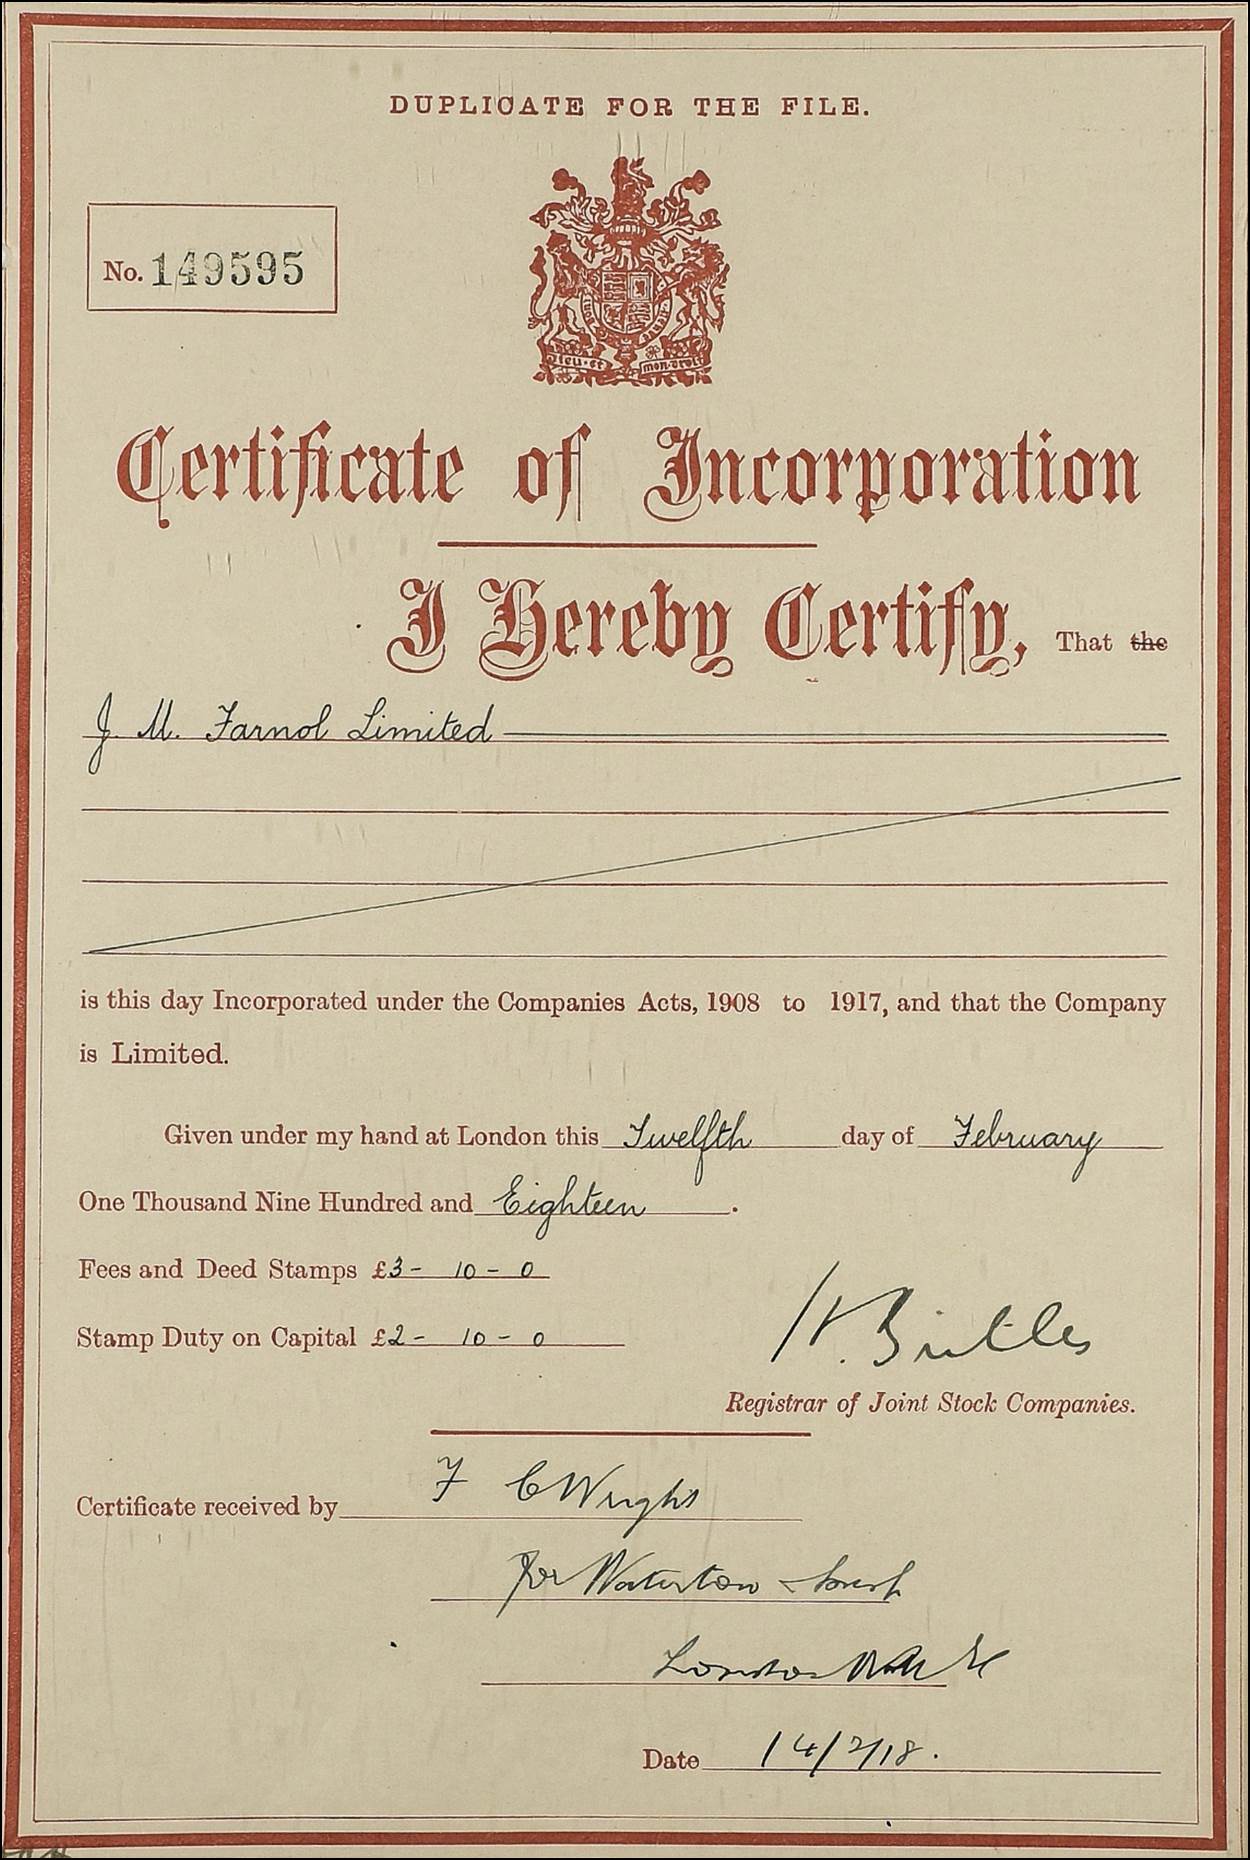 DUPLICATE FOR THE FILE.
No. 149595
Dieu et mon droit
Certificate of Incorporation
I Hereby Certify, That the
J. M. Farnol Limited
is this day Incorporated under the Companies Acts, 1908 to 1917, and that the Company
is Limited.
Given under my hand at London this Twelfth day of February
One Thousand Nine Hundred and Eighteen.
Fees and Deed Stamps £3 - 10 - 0
Stamp Duty on Capital £2 - 10 - 0
H. Birtles
Registrar of Joint Stock Companies.
Certificate received by F C Wright
for Waterlow
London Wall
Date 14/2/18.